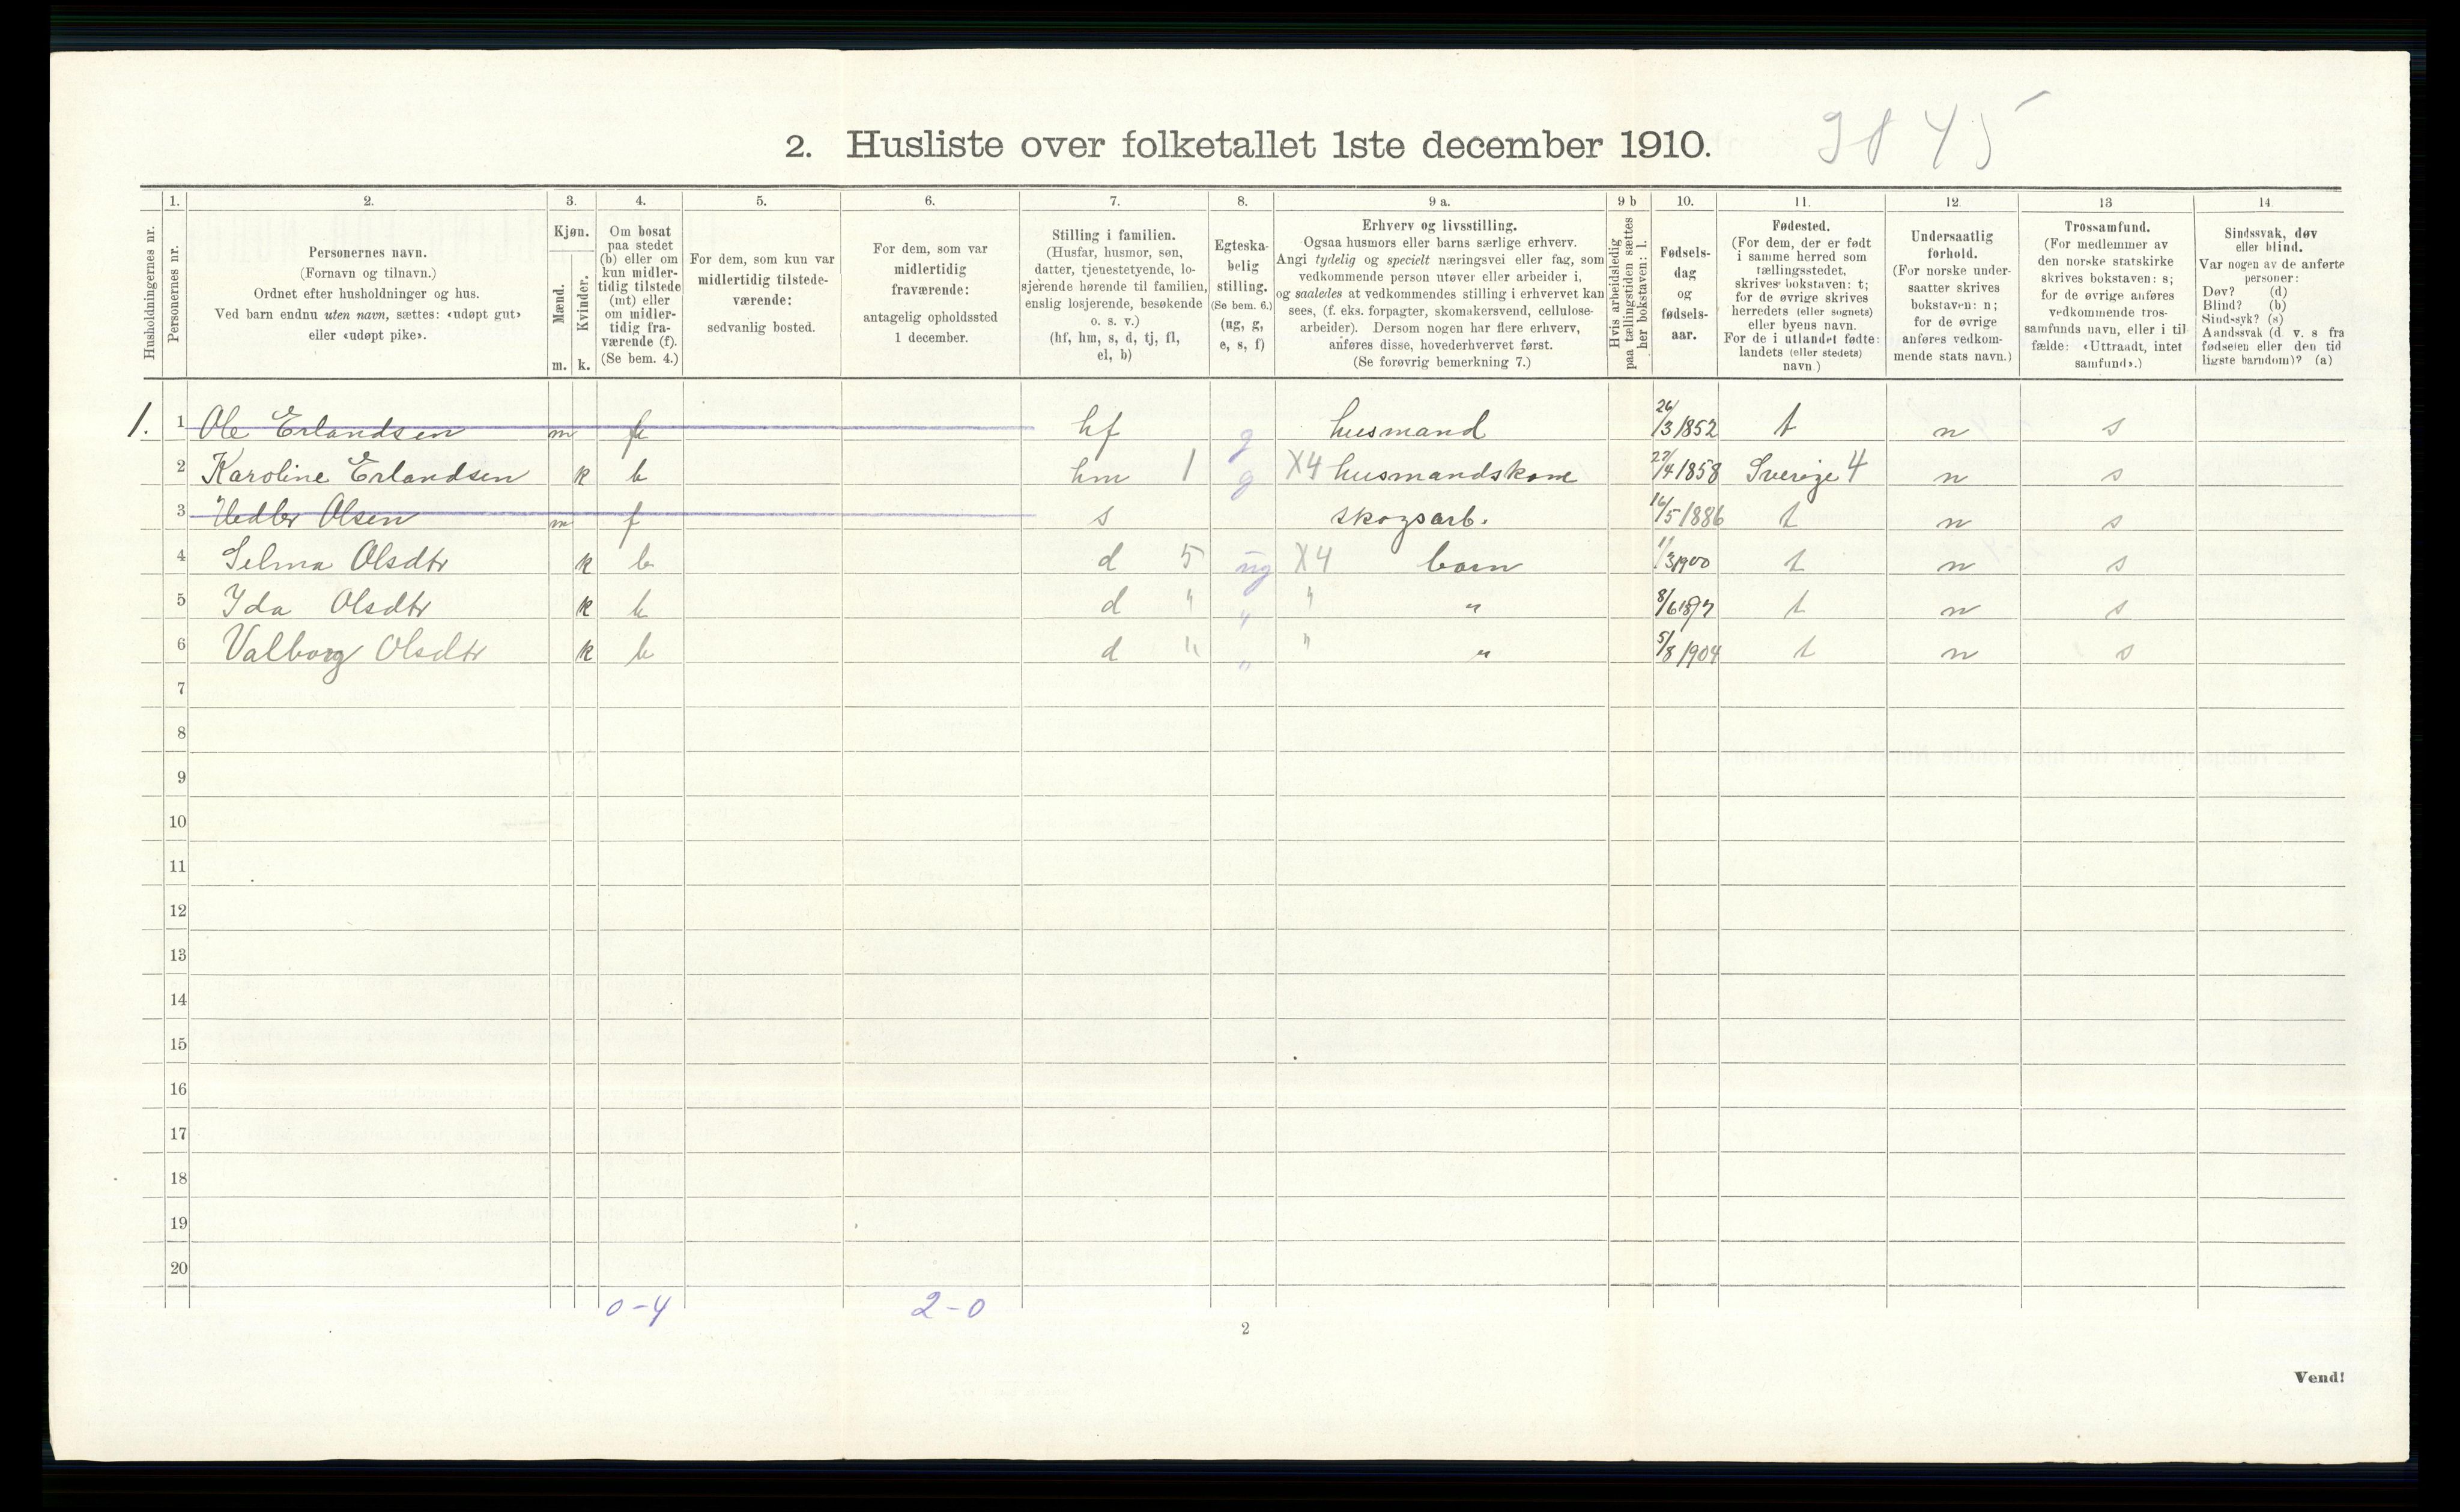 2. Husliste over folketallet 1ste december 1910. 9845
1. 2. 3. 4. 5. 6. 7. 8. 9 a. 9 b 10. 11. 12. 13 14
Husholdningernes nr.
Personernes nr.
Personernes navn.
(Fornavn og tilnavn.)
Ordnet efter husholdninger og hus.
Ved barn endnu uten navn, sættes: «udøpt gut»
eller «udøpt pike».
Kjøn.
Mænd.
Kvinder.
m. k.
Om bosat
paa stedet
(b) eller om
kun midler-
tidig tilstede
(mt) eller
om midler-
tidig fra-
værende (f).
(Se bem. 4.)
For dem, som kun var
midlertidig tilstede-
værende:
sedvanlig bosted.
For dem, som var
midlertidig
fraværende:
antagelig opholdssted
1 december.
Stilling i familien.
(Husfar, husmor, søn,
datter, tjenestetyende, lo-
sjerende hørende til familien,
enslig losjerende, besøkende
o. s. v.)
(hf, hm, s, d, tj, fl,
el, b)
Egteska-
belig
stilling.
(Se bem. 6.)
(ug, g,
e, s, f)
Erhverv og livsstilling.
Ogsaa husmors eller barns særlige erhverv.
Angi tydelig og specielt næringsvei eller fag, som
vedkommende person utøver eller arbeider i,
og saaledes at vedkommendes stilling i erhvervet kan
sees, (f. eks. forpagter, skomakersvend, cellulose-
arbeider). Dersom nogen har flere erhverv,
anføres disse, hovederhvervet først.
(Se forøvrig bemerkning 7.)
Hvis arbeidsledig
paa tællingstiden sættes
her bokstaven: l.
Fødsels-
dag
og
fødsels-
aar.
Fødested.
(For dem, der er født
i samme herred som
tællingsstedet,
skrives bokstaven: t;
for de øvrige skrives
herredets (eller sognets)
eller byens navn.
For de i utlandet fødte:
landets (eller stedets)
navn.)
Undersaatlig
forhold.
(For norske under-
saatter skrives
bokstaven: n;
for de øvrige
anføres vedkom-
mende stats navn.)
Trossamfund.
(For medlemmer av
den norske statskirke
skrives bokstaven: s;
for de øvrige anføres
vedkommende tros-
samfunds navn, eller i til
fælde: «Uttraadt, intet
samfund».)
Sindssvak, døv
eller blind.
Var nogen av de anførte
personer:
Døv? (d)
Blind? (b)
Sindssyk? (s)
Aandssvak (d. v. s fra
fødselen eller den tid
ligste barndom)? (a)
1. 1 Ole Erlandsen m f hf g husmand 26/3 1852 t n s
2 Karoline Erlandsen k b hm 1 g X4 husmandskone 4 1858 Sverige 4 n s
3 Olsen m f s skogsarb. 16/5 1886 t n s
4 Selma Olsdtr k b d 5 ug X4 barn 11/3 1900 t n s
5 Ida Olsdtr k b d " " " " 8/6 1897 t n s
6 Valborg Olsdtr k b d " " " " 5/8 1904 t n s
7
8
9
10
11
12
13
14
15
16
17
18
19
20
0-4 2-0
2
Vend!